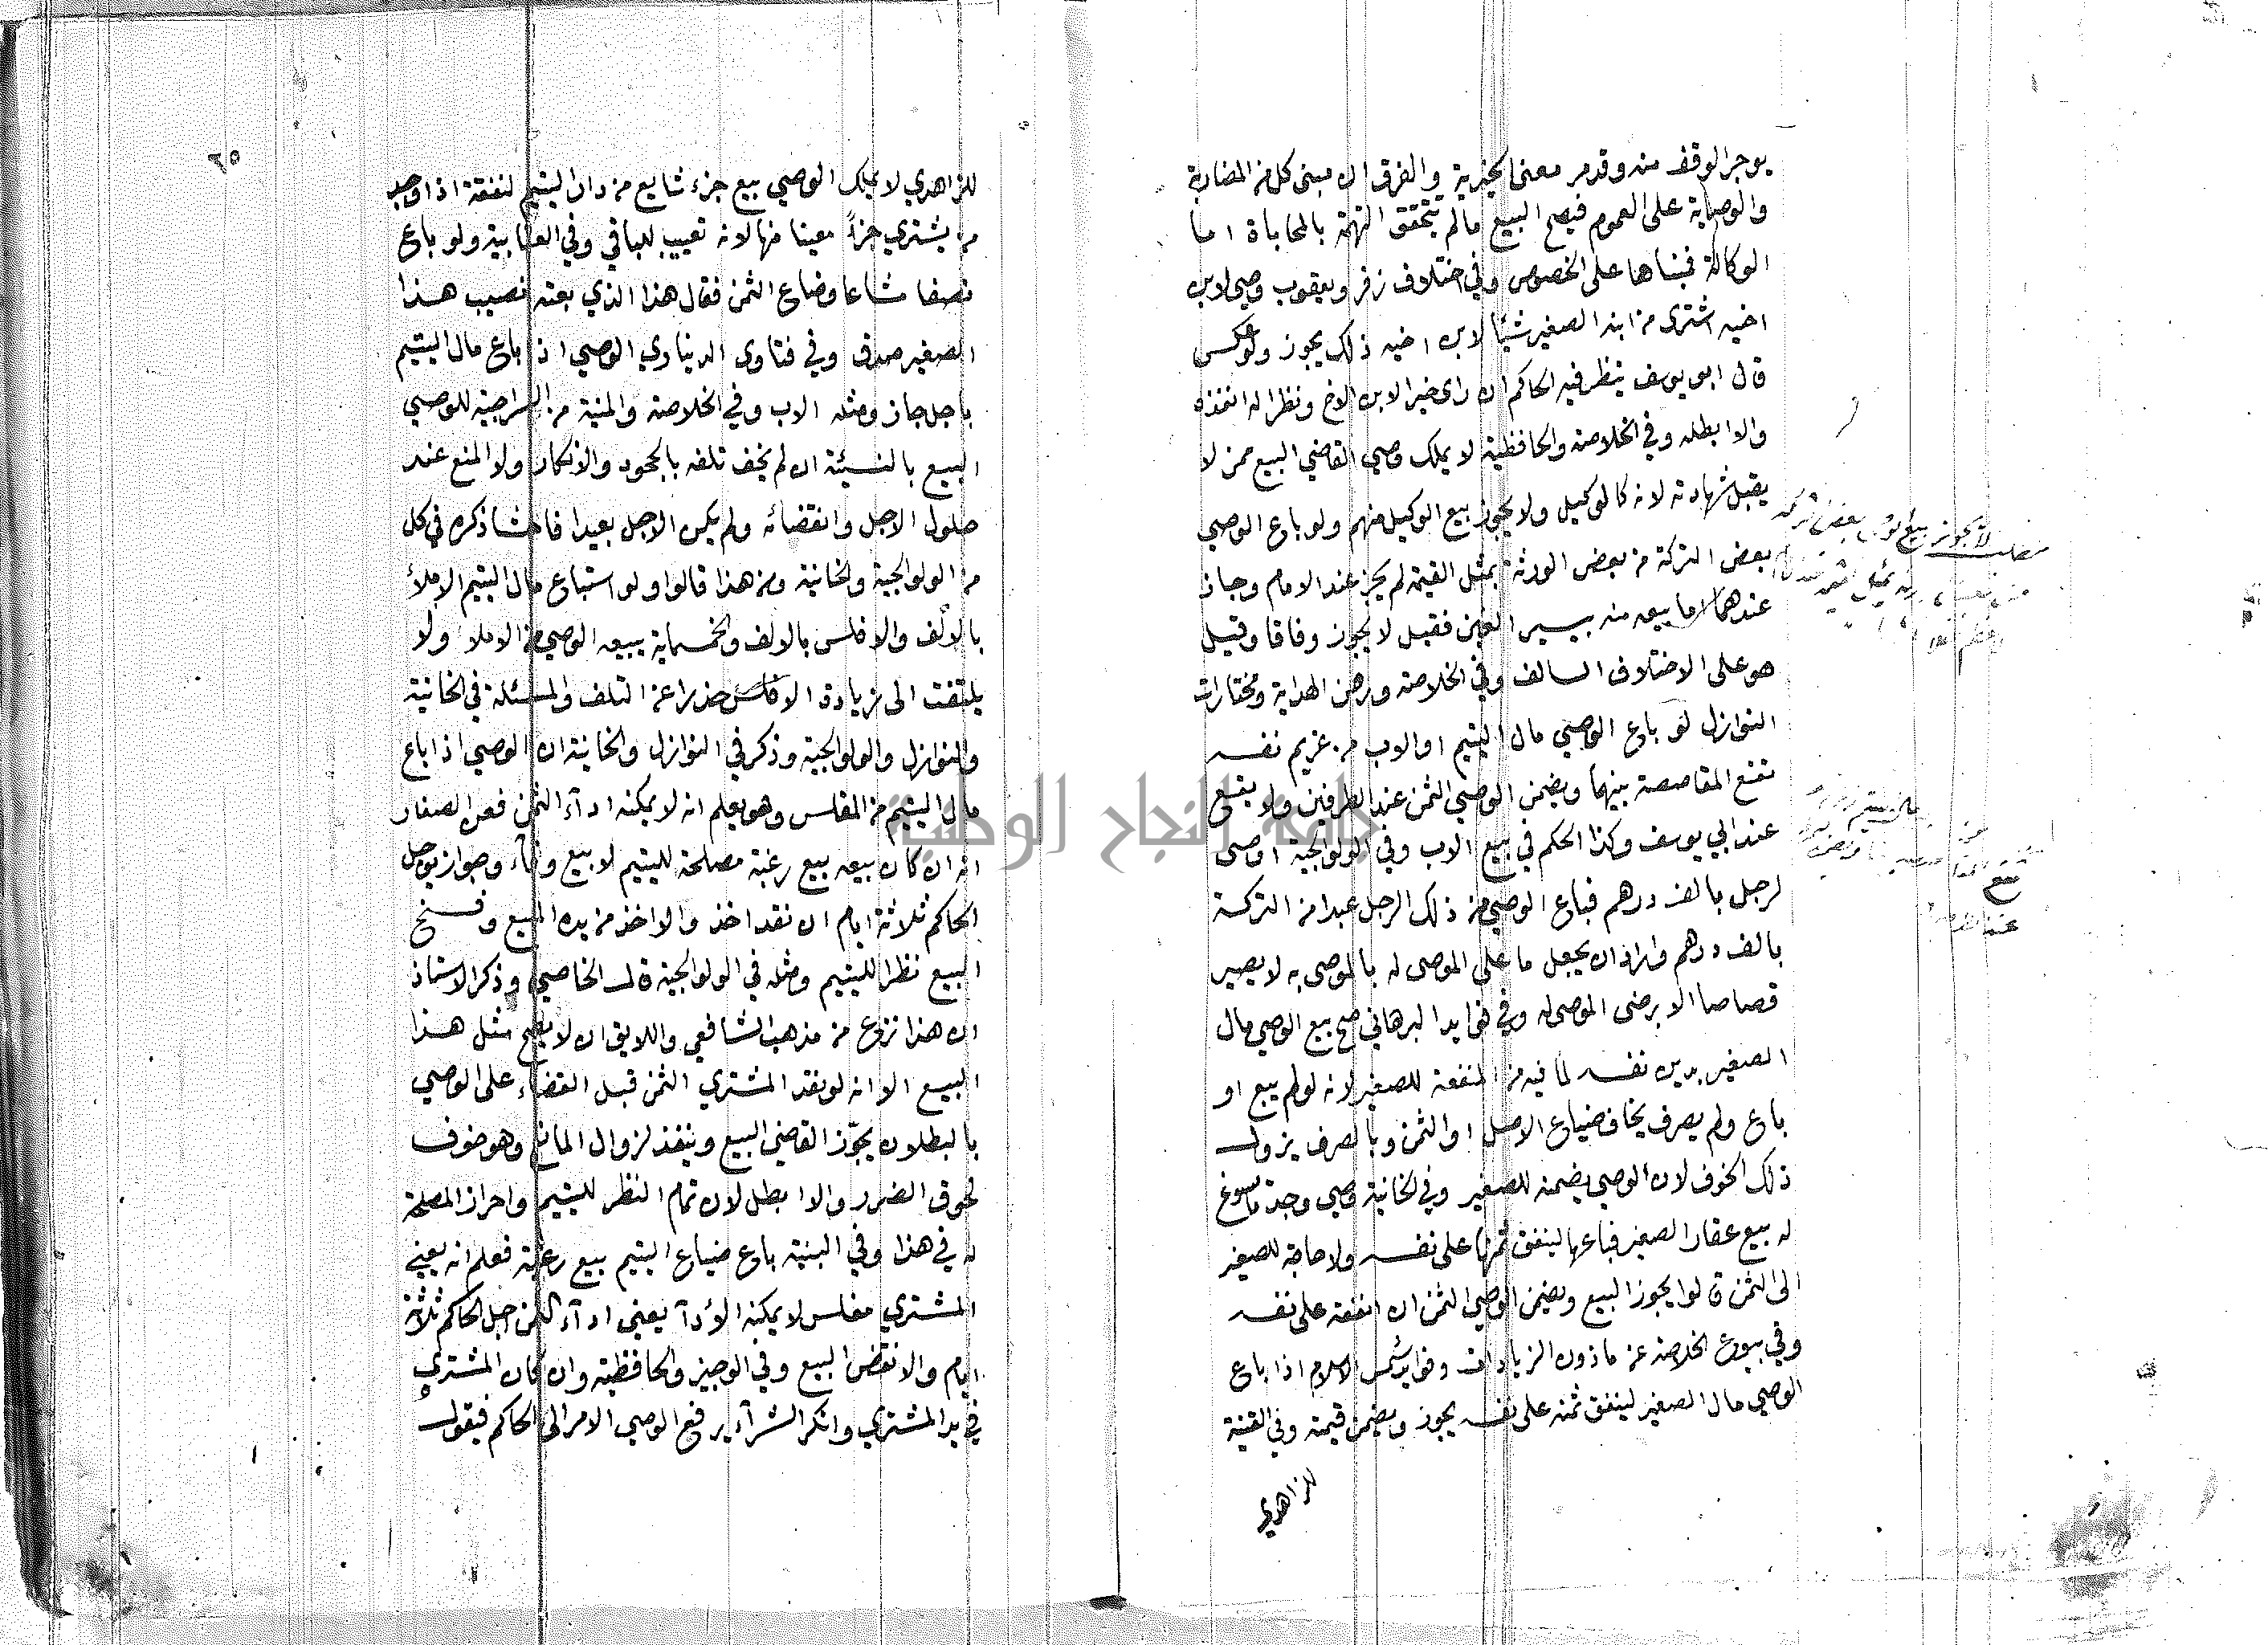 يوجر الوقف منه وقد مر معنى الخيرية والفرق ان مبنى كل من المضاربة
والوصاية على العموم فيصح البيع مالم تتحقق التهمة بالمحاباة اما
الوكالة فمبناها على الخصوص وفي اختلاف زفر ويعقوب وصي لابن
اخيه اشترى من ابنه الصغير شيئا لابن اخيه ذلك يجوز ولو عكس
قال ابو يوسف ينظر فيه الحاكم ان راى خيرا لابن الاخ ونظرا له انفذه
والا ابطله وفي الخلاصة والحافظية لا يملك وصي القاضي البيع ممن لا
يقبل شهادته لانه كالوكيل ولا يجوز بيع الوكيل منهم ولو باع الوصي
بعض التركة من بعض الورثة بمثل القيمة لم يجز عند الامام وجاز
عندهما اما بيعه منه بيسير الغبن فقيل لا يجوز وفاقا وقيل
هو على الاختلاف السالف وفي الخلاصة ورهن الهداية ومختارات
النوازل لو باع الوصي مال اليتيم او الاب من غريم نفسه
تقع المقاصصة بينهما ويضمن الوصي الثمن عند الطرفين ولا يقع
عند ابي يوسف وكذا الحكم في بيع الاب وفي الولوالجية اوصى
لرجل بالف درهم فباع الوصي من ذلك الرجل عبدا من التركة
بالف درهم واراد ان يجعل ما على الموصى له بالموصى به لا يصير
قصاصا الا برضى الموصى له وفي فوايد البرهاني صح بيع الوصي مال
الصغير بدين نفسه لما فيه من المنفعة للصغير لانه لو لم يبع او
باع ولم يصرف يخاف ضياع الاصل او الثمن وبالصرف يزول
ذلك الخوف لان الوصي يضمنه للصغير وفي الخانية وصي وجد ما يسوغ
له بيع عقار الصغير فباعها لينفق ثمنها على نفسه ولا حاجة للصغير
الى الثمن قالوا يجوز البيع ويضمن الوصي الثمن ان انفقه على نفسه
وفي بيوع الخلاصة عن ماذون الزيادات وفوايد شمس الاسلام اذا باع
الوصي مال الصغير لينفق ثمنه على نفسه يجوز ويضمن قيمته وفي القنية
للزاهدي
لا يجوز بيع الوصي بعض التركة
٦٥
للزاهدي لا يملك الوصي بيع جزء شايع من دار اليتيم لنفقة اذا وجد
من يشتري جزءا معينا منها لانه تعييب للباقي وفي العتابية ولو باع
نصفا مشاعا وضاع الثمن فقال هذا الذي بعته نصيب هذا
الصغير صدق وفي فتاوى الديناري الوصي اذا باع مال اليتيم
باجل جاز ومثله الاب وفي الخلاصة والمنية من السراجية للوصي
البيع بالنسيئة ان لم يخف تلفه بالجحود والانكار ولا المنع عند
حلول الاجل وانقضائه ولم يكن الاجل بعيدا فاحشا ذكره في كل
من الولوالجية والخانية ومن هذا قالوا ولو استباع مال اليتيم الاملأ
بالالف والافلس بالالف والخمسماية يبيعه الوصي من الاملاء ولا
يلتفت الى زيادة الافلس حذرا عن التلف والمسئلة في الخانية
والنوازل والولوالجية وذكر في النوازل والخانية ان الوصي اذا باع
مال اليتيم من المفلس وهو يعلم انه لا يمكنه اداء الثمن فعن الصفار
انه ان كان بيعه بيع رغبة مصلحة لليتيم لا بيع وفاء وجواز يوجل
الحاكم ثلاثة ايام ان نقد اخذ والا اخذ من يده المبيع وفسخ
البيع نظرا لليتيم ومثله في الولوالجية قال الخاصي وذكر الاستاذ
ان هذا نزوع من مذهب الشافعي واللايق ان لا يصح مثل هذا
البيع الا انه لو نقد المشتري الثمن قبل القضاء على الوصي
بالبطلان يجوّز القاضي البيع وينفذ لزوال المانع وهو خوف
لحوق الضرر والا ابطل لان تمام النظر لليتيم واحراز المصلحة
له في هذا وفي البنية باع ضياع اليتيم بيع رغبة فعلم انه يعني
المشتري مفلس لا يمكنه الأدآ يعني ادآء الثمن اجل الحاكم ثلاثة
ايام والا نقض البيع وفي الوجيز والحافظية وان كان المشترى
في يد المشتري وانكر الشرآء يرفع الوصي الامر الى الحاكم فيقول
جامعة النجاح الوطنية